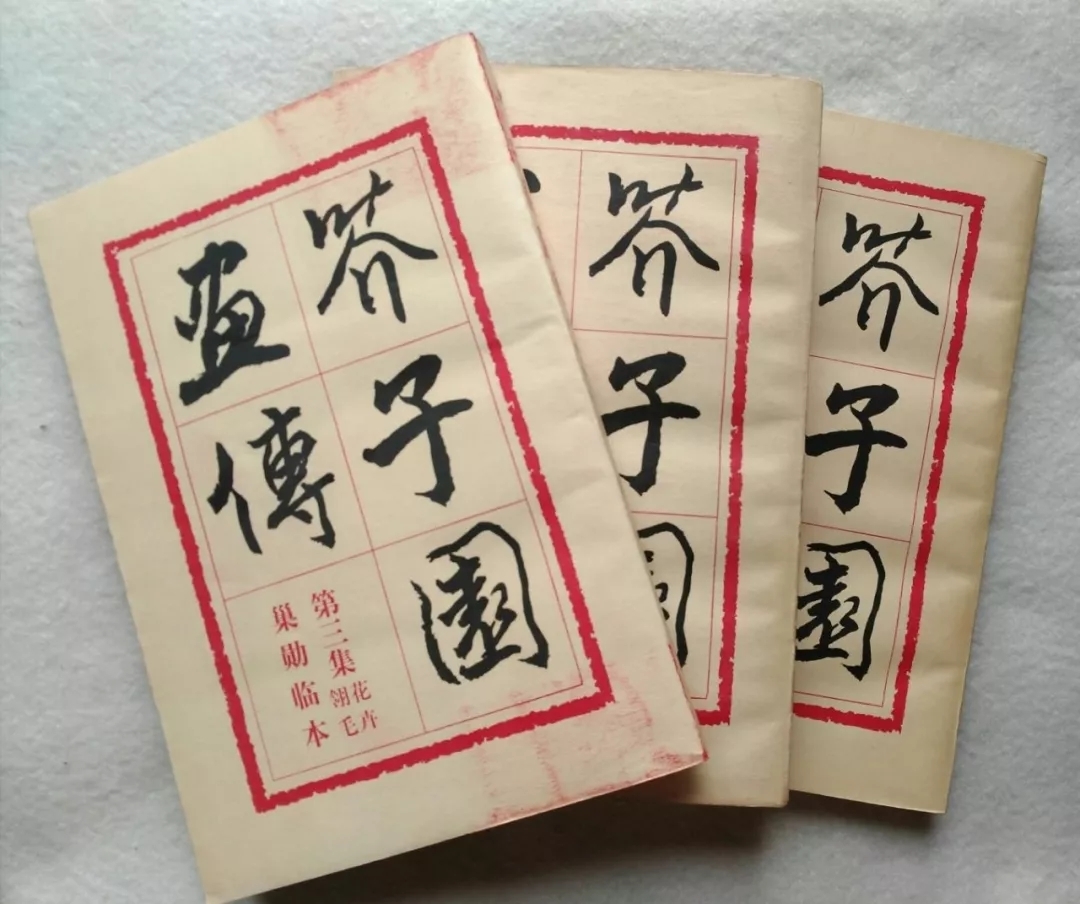 芥子園
畫傳
第三集 花卉 翎毛
巢勋临本
芥子園
芥子園